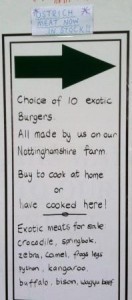 OSTRICH
MEAT NOW
IN STOCK
Choice of 10 exotic
Burgers.
All made by us on our
Nottinghamshire farm
Buy to cook at home
or
have cooked here!
Exotic meats for sale
crocodile, springbok,
zebra, camel, frogs legs
python, kangaroo,
buffalo, bison, wagyu beef